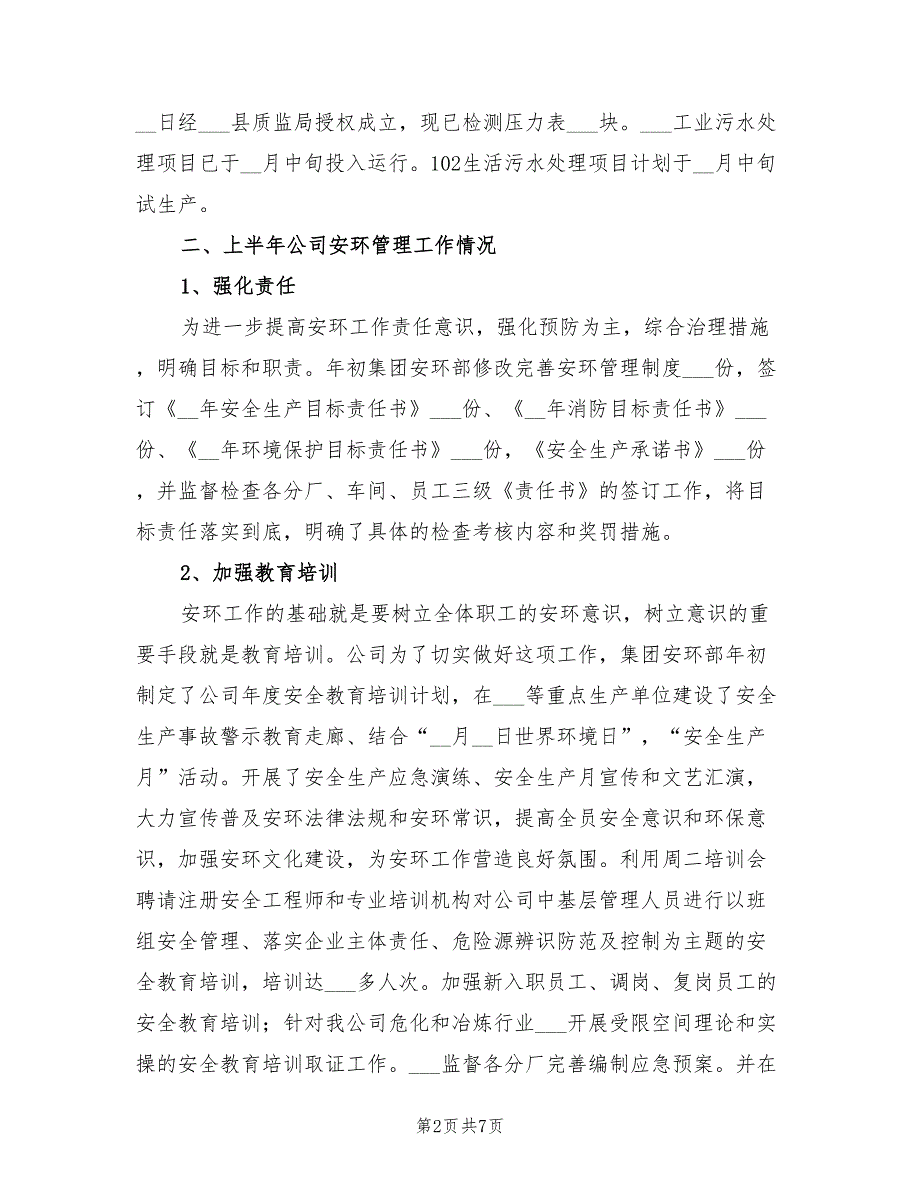 __日经___县质监局授权成立，现已检测压力表___块。___工业污水处
理项目已于__月中旬投入运行。102生活污水处理项目计划于__月中旬
试生产。
二、上半年公司安环管理工作情况
1、强化责任
为进一步提高安环工作责任意识，强化预防为主，综合治理措施
，明确目标和职责。年初集团安环部修改完善安环管理制度___份，签
订《__年安全生产目标责任书》___份、《__年消防目标责任书》___
份、《__年环境保护目标责任书》___份，《安全生产承诺书》___份
，并监督检查各分厂、车间、员工三级《责任书》的签订工作，将目
标责任落实到底，明确了具体的检查考核内容和奖罚措施。
2、加强教育培训
安环工作的基础就是要树立全体职工的安环意识，树立意识的重
要手段就是教育培训。公司为了切实做好这项工作，集团安环部年初
制定了公司年度安全教育培训计划，在___等重点生产单位建设了安全
生产事故警示教育走廊、结合“__月__日世界环境日”，“安全生产
月”活动。开展了安全生产应急演练、安全生产月宣传和文艺汇演，
大力宣传普及安环法律法规和安环常识，提高全员安全意识和环保意
识，加强安环文化建设，为安环工作营造良好氛围。利用周二培训会
聘请注册安全工程师和专业培训机构对公司中基层管理人员进行以班
组安全管理、落实企业主体责任、危险源辨识防范及控制为主题的安
全教育培训，培训达___多人次。加强新入职员工、调岗、复岗员工的
安全教育培训；针对我公司危化和冶炼行业___开展受限空间理论和实
操的安全教育培训取证工作。___监督各分厂完善编制应急预案。并在
第2页 共7页